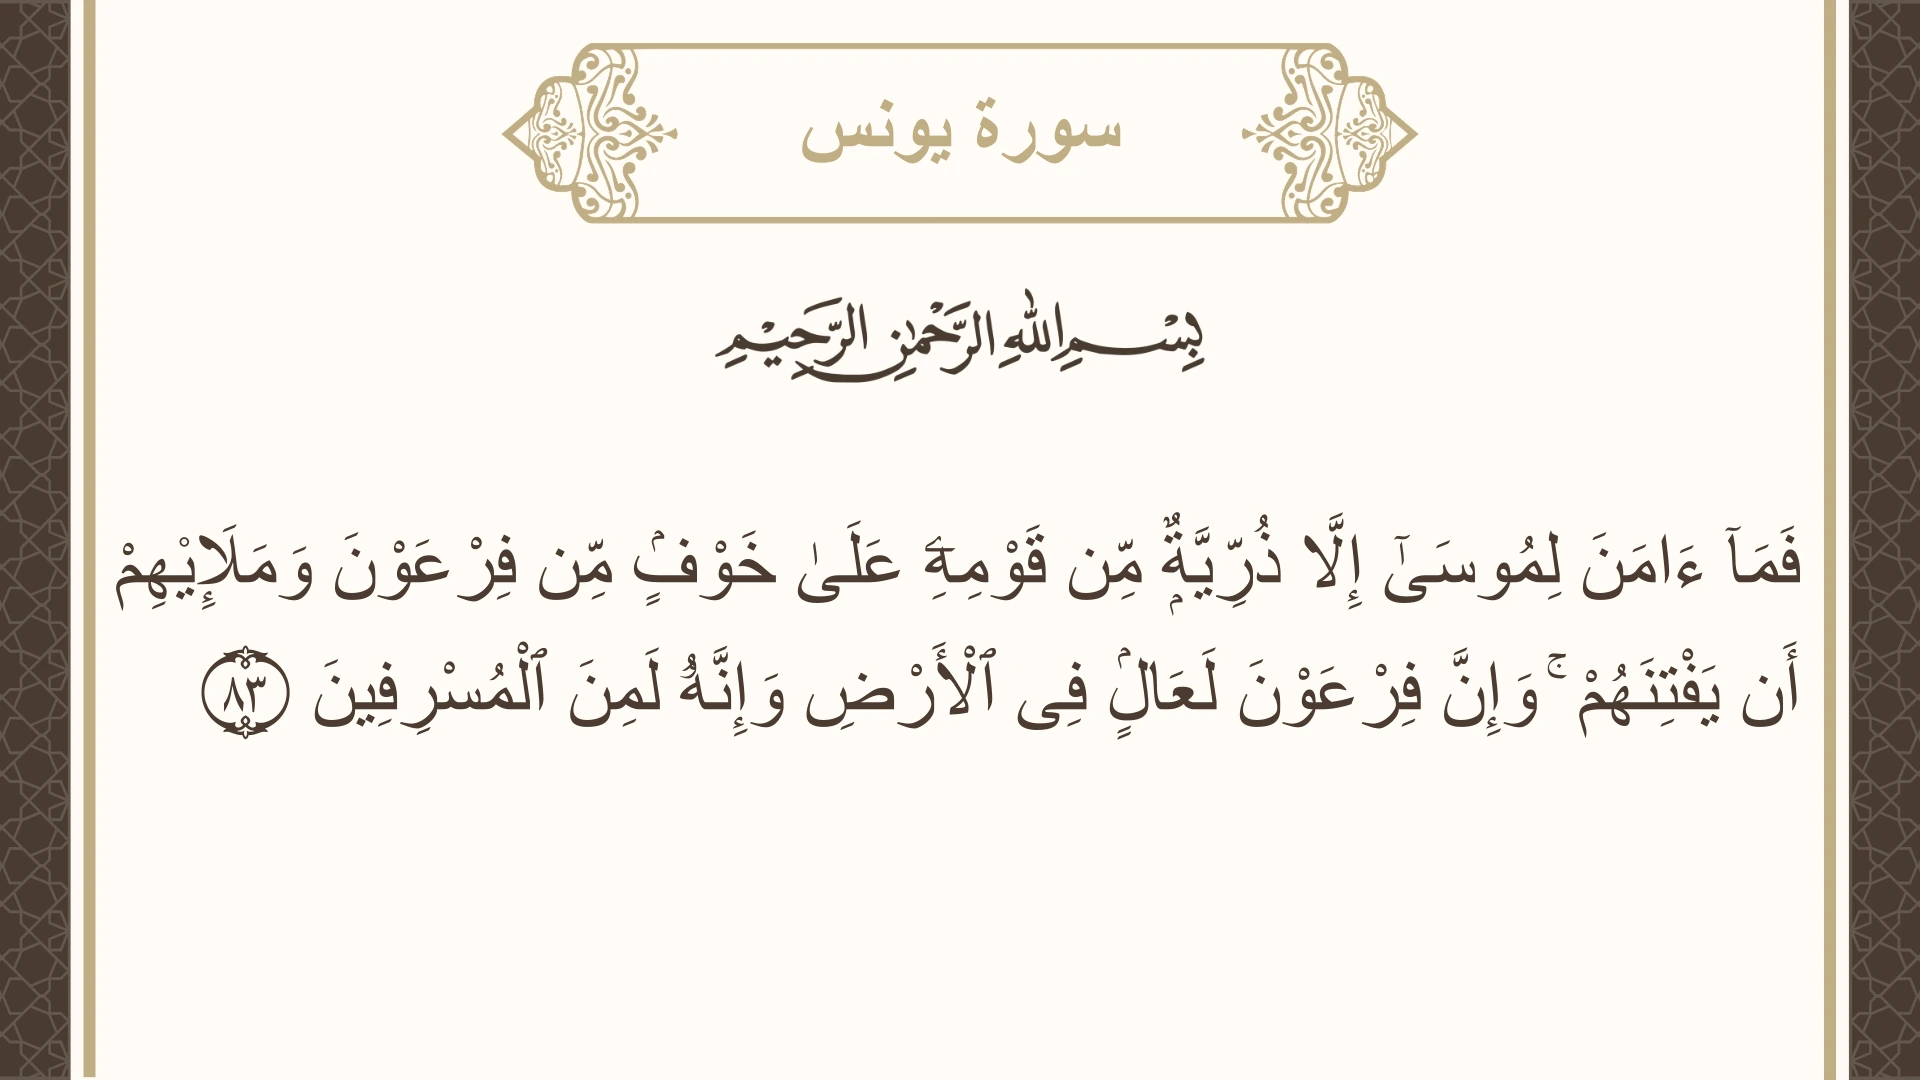 سورة يونس
بِسْمِ اللهِ الرَّحْمٰنِ الرَّحِيْمِ
فَمَآ ءَامَنَ لِمُوسَىٰٓ إِلَّا ذُرِّيَّةٌۭ مِّن قَوْمِهِۦٓ عَلَىٰ خَوْفٍۢ مِّن فِرْعَوْنَ وَمَلَإِي۟هِمْ
أَن يَفْتِنَهُمْ ۚ وَإِنَّ فِرْعَوْنَ لَعَالٍۢ فِى ٱلْأَرْضِ وَإِنَّهُۥ لَمِنَ ٱلْمُسْرِفِينَ ٨٣